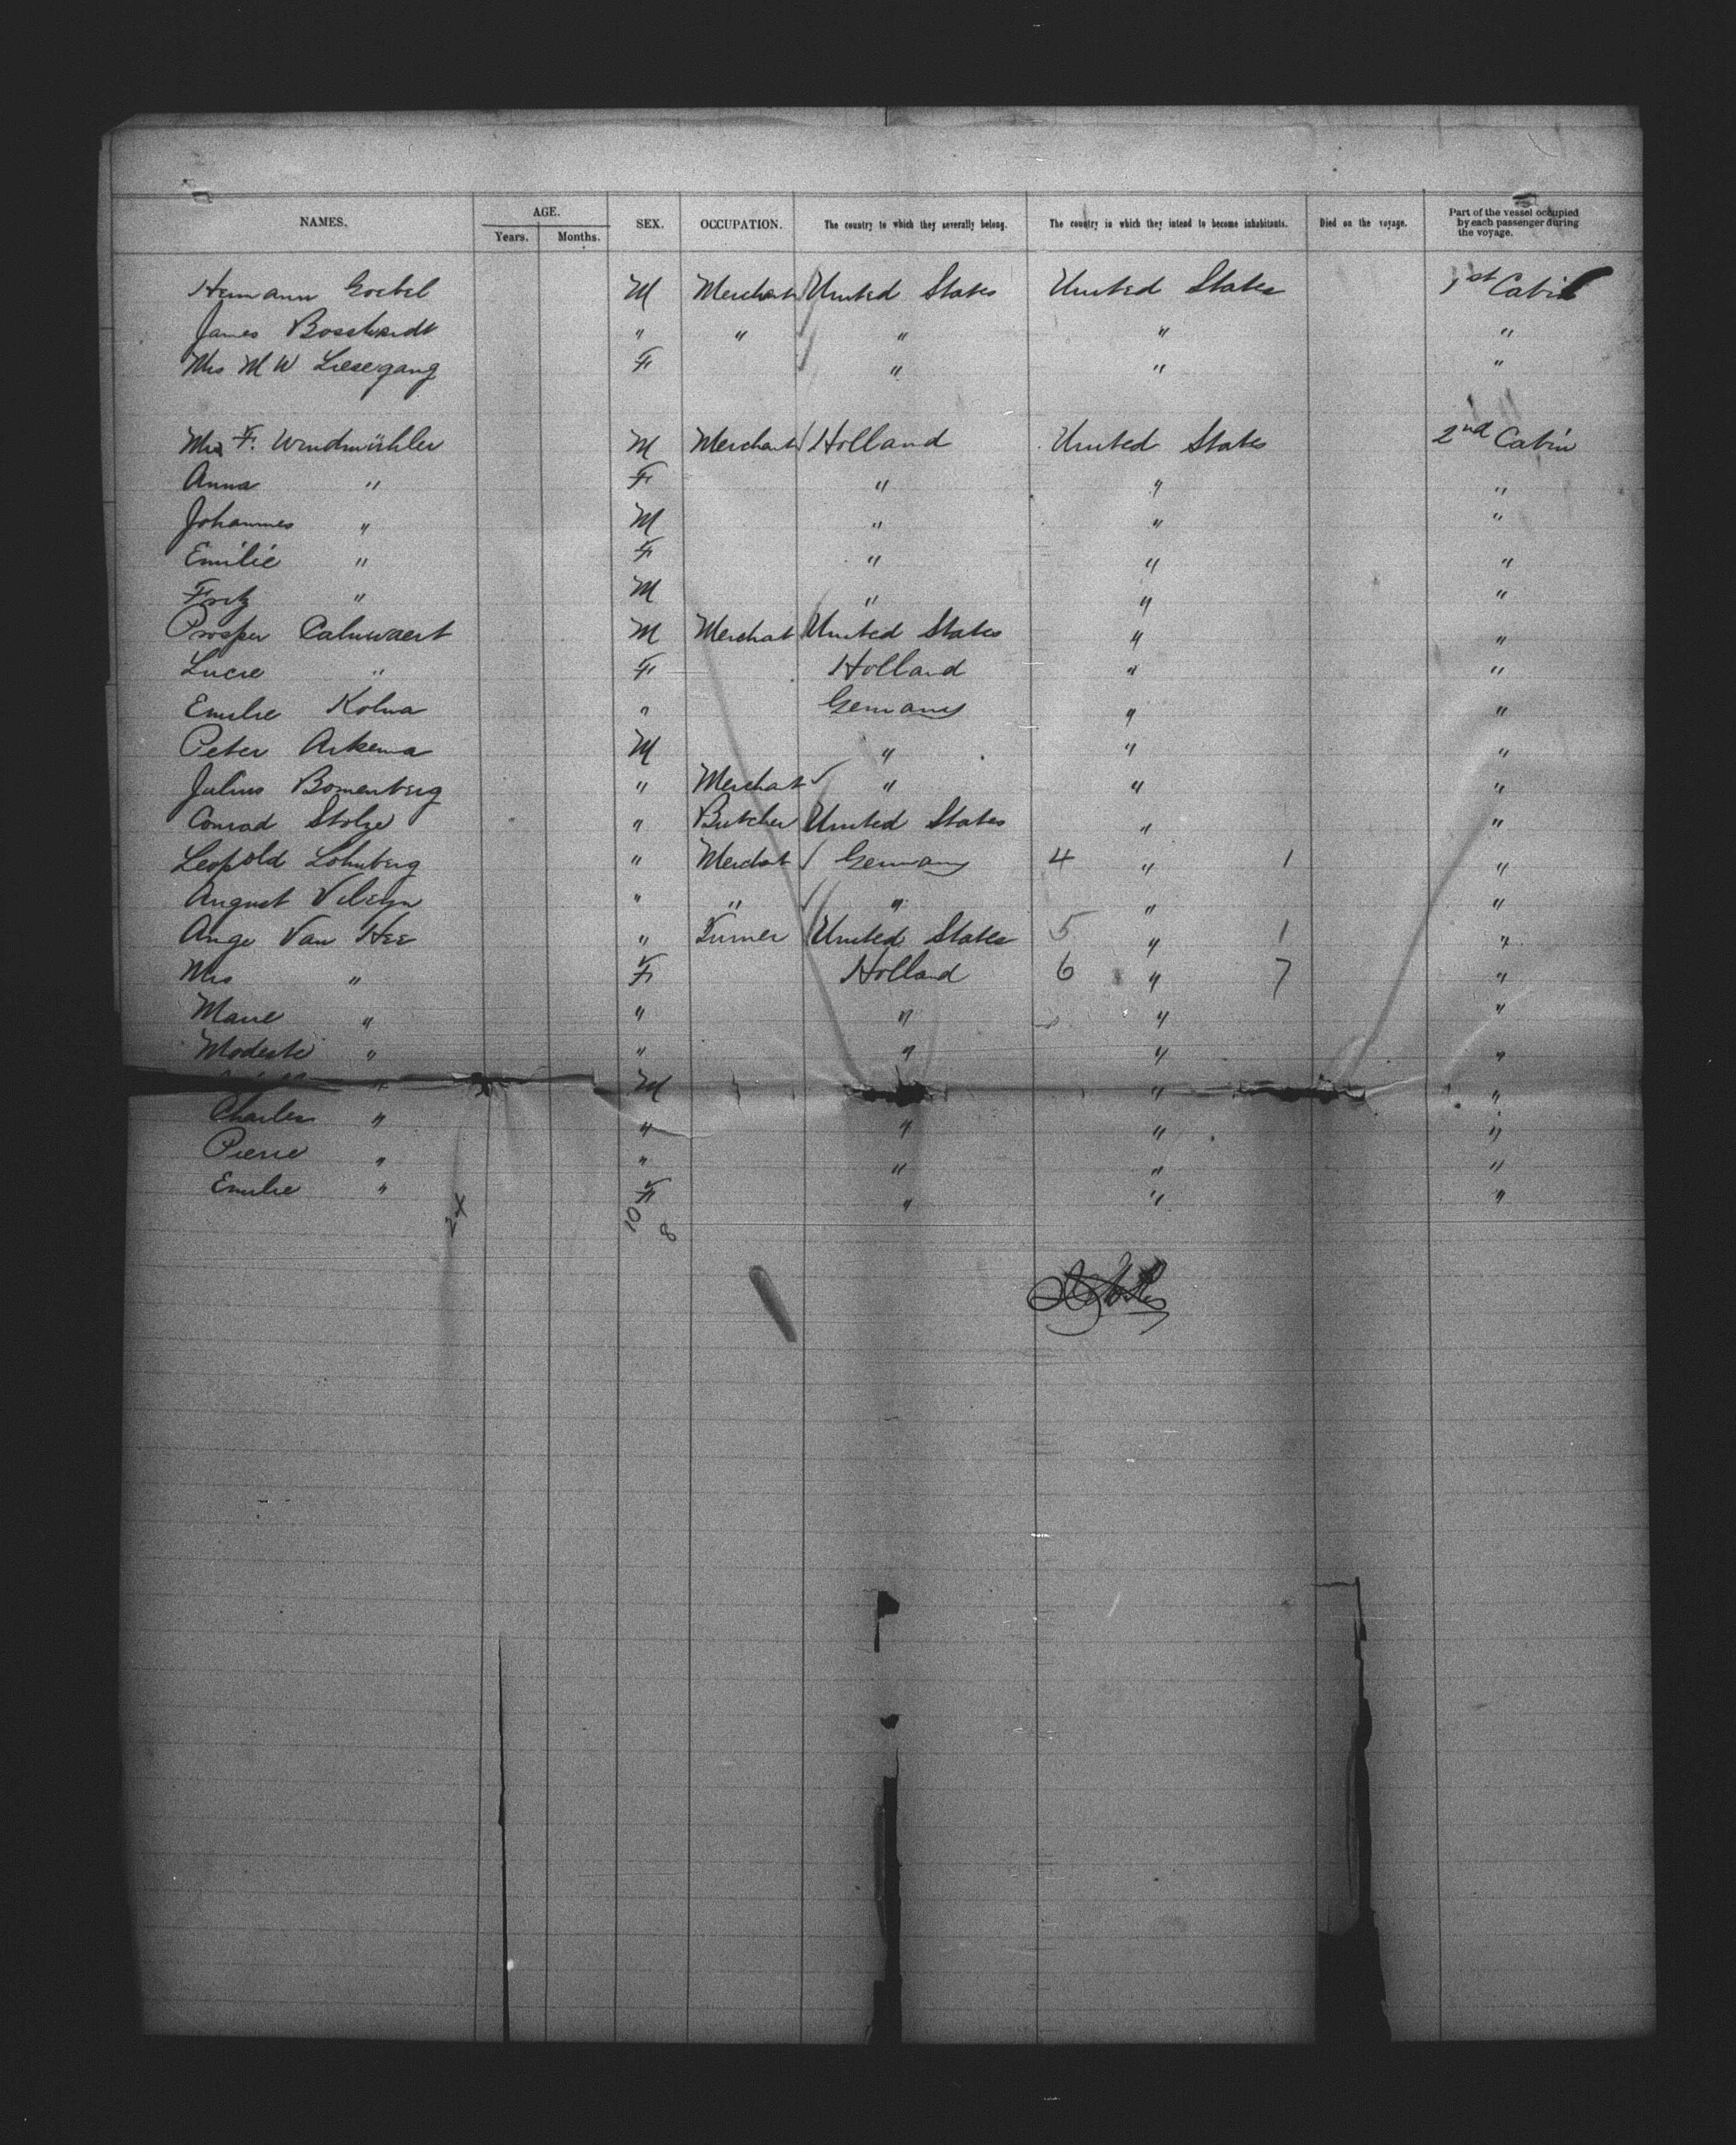 NAMES. AGE. SEX. OCCUPATION. The country to which they severally belong. The country in which they intend to become inhabitants. Died on the voyage. Part of the vessel occupied by each passenger during the voyage.
Years. Months.
Hermann Goebel M Merchant United States United States 1st Cabin
James Bosshardt " " " " "
Mrs M W Liesegang F " " "
Mr F. Windmühler M Merchant Holland United States 2nd Cabin
Anna " F " " "
Johannes " M " " "
Emilie " F " " "
Fritz " M " " "
Prosper Caluwaert M Merchat United States " "
Lucie " F Holland " "
Emilie Kolna " Germany " "
Peter Arkema M " " "
Julius Bomenberg " Merchat " " "
Conrad Stolze " Butcher United States " "
Leopold Lohnberg " Merchat Germany 4 " 1 "
August Vileyn " " " " "
Ange Van Hee " Turner United States 5 " 1 "
Mrs " F Holland 6 " 7 "
Marie " " " " "
Modeste " " " " "
" M " "
Charles " " " " "
Pierre " " " " "
Emilie " F " " "
24 10 8